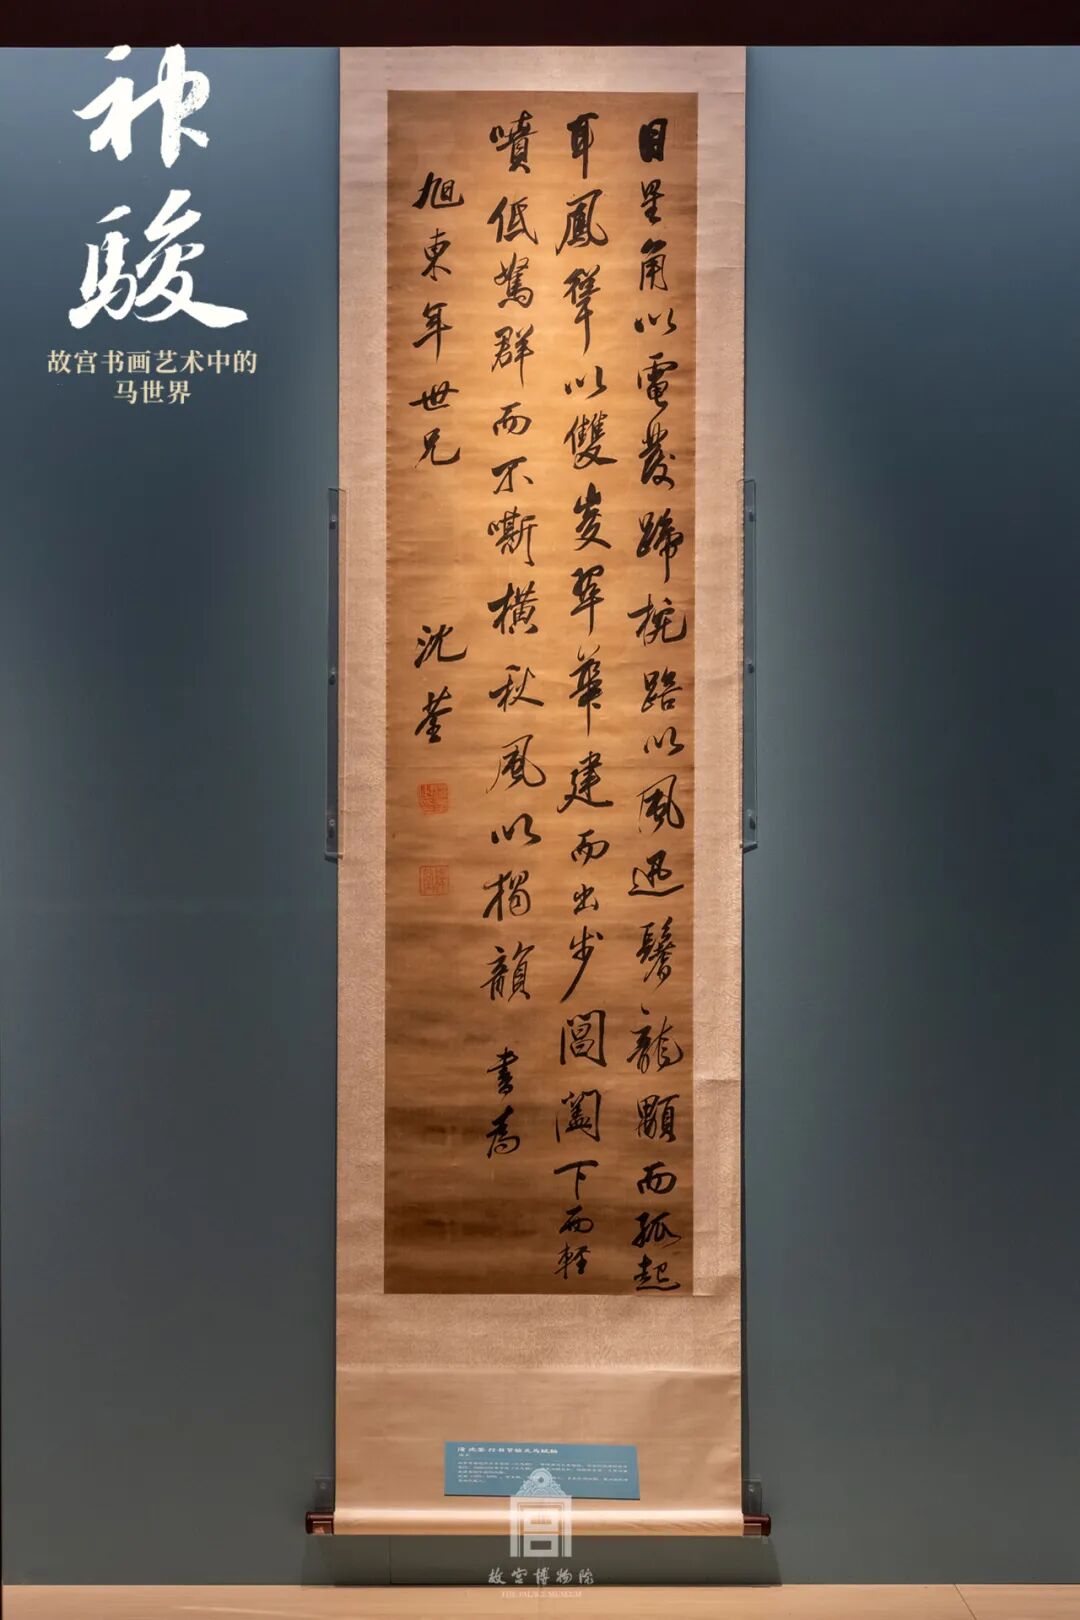 神
駿
故宫书画艺术中的
马世界
目星角以電發蹄椀踣以風迅鬐龍顒而孤起
耳鳳聳以雙峻翠華建而出步閶闔下而輕
噴低駑群而不嘶橫秋風以獨韻 書為
旭東年世兄 沈荃
故宫博物院
THE PALACE MUSEUM